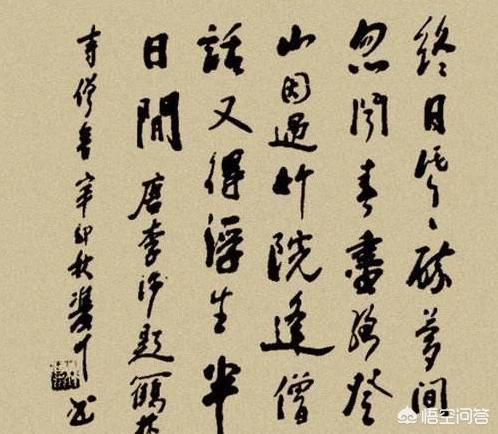 終日昏〻醉夢間
忽聞春盡強登
山因過竹院逢僧
話又得浮生半
日間 唐李涉題鶴林
寺僧舍 辛卯秋
书
悟空问答